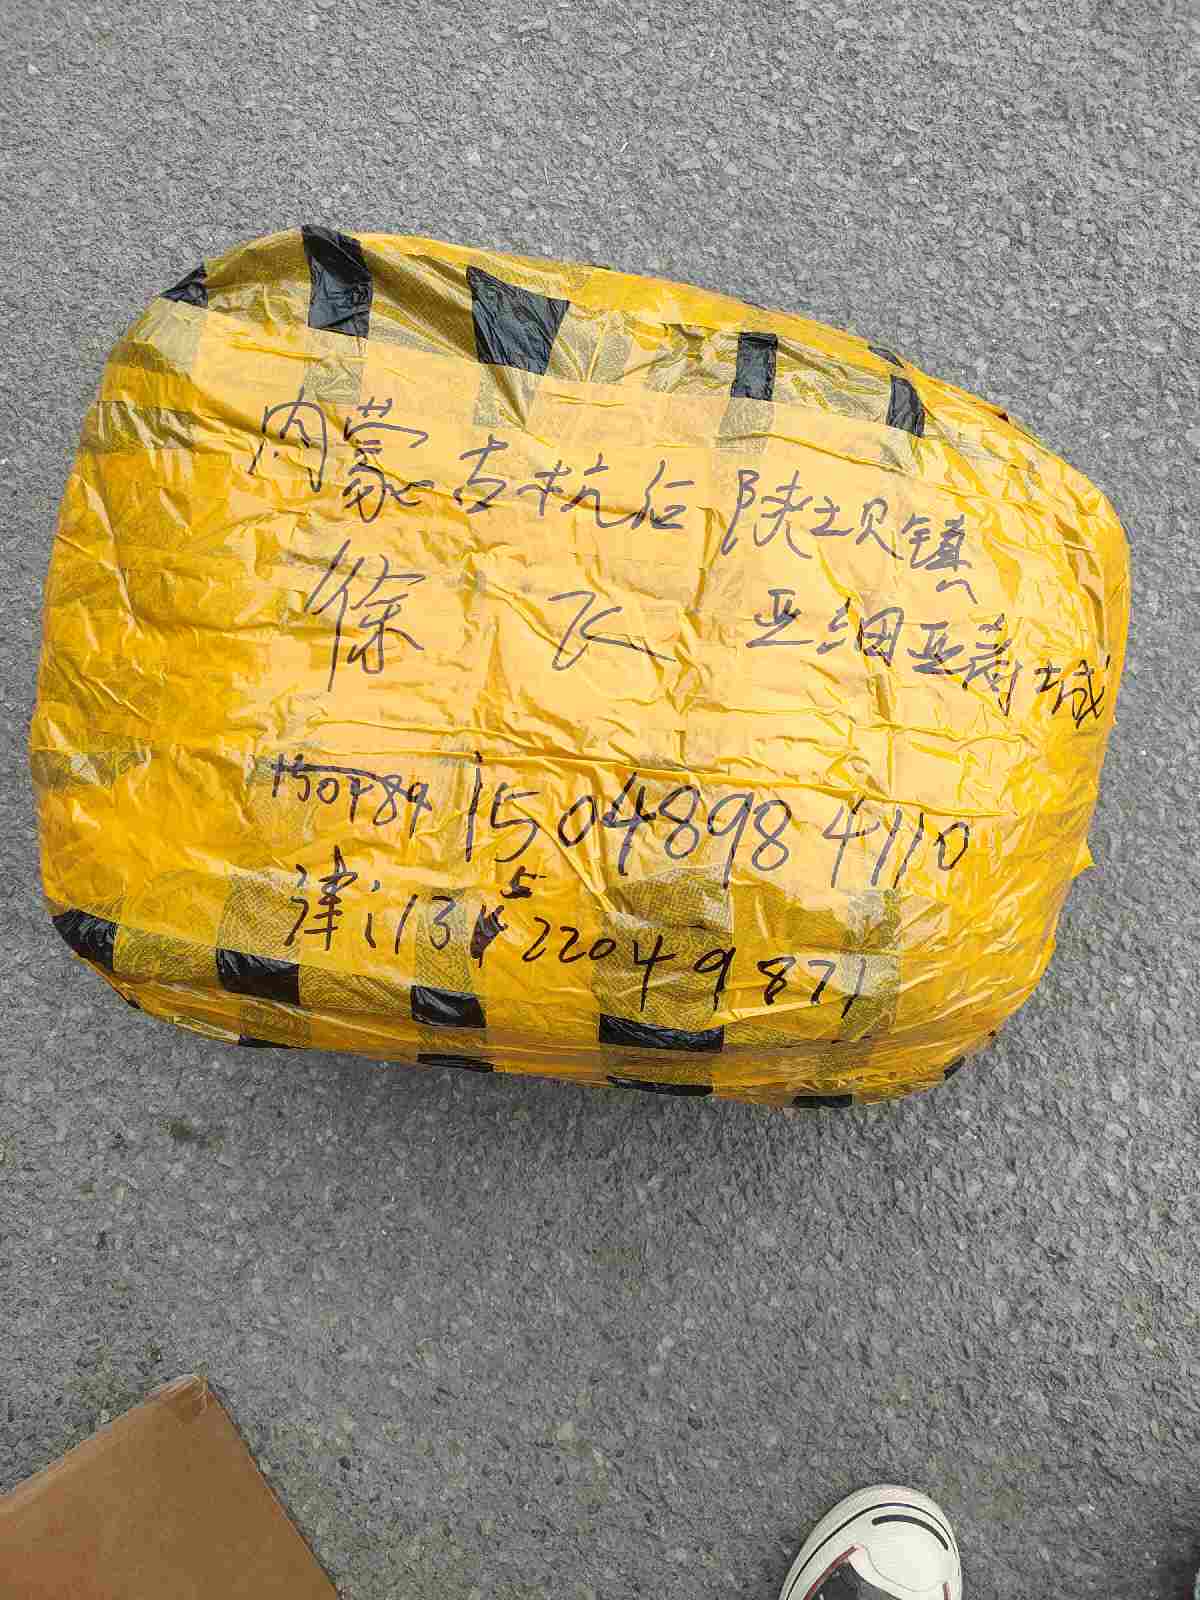 内蒙古杭后陕坝镇
徐飞 亚细亚商城
150489 15048984110
津:13522049871